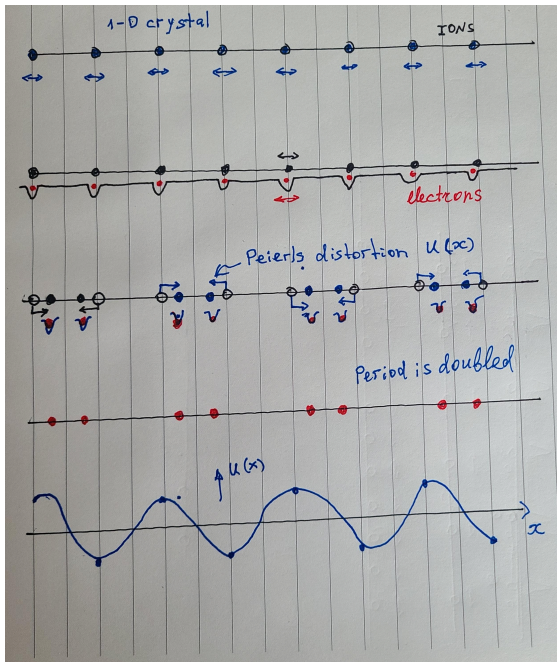 1-D crystal
IONS
electrons
Peierls distortion u(x)
Period is doubled
u(x)
x